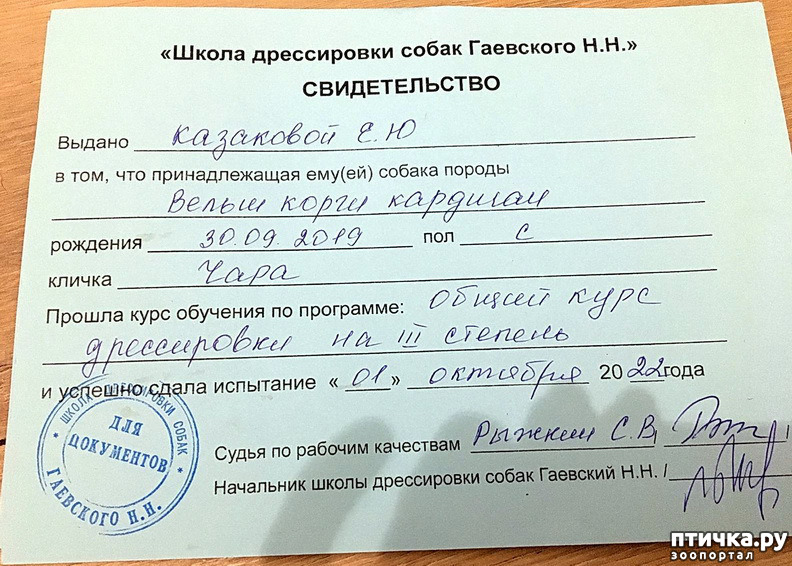 «Школа дрессировки собак Гаевского Н.Н.»
СВИДЕТЕЛЬСТВО
Выдано Казаковой Е.Ю
в том, что принадлежащая ему(ей) собака породы
Вельш корги кардиган
рождения 30.09.2019 пол с
кличка Чара
Прошла курс обучения по программе: Общий курс
дрессировки на III степень
и успешно сдала испытание «01» октября 2022года
Судья по рабочим качествам Рыжкин С.В.
Начальник школы дрессировки собак Гаевский Н.Н. /
* ШКОЛА ДРЕССИРОВКИ СОБАК *
ДЛЯ
ДОКУМЕНТОВ
ГАЕВСКОГО Н.Н.
птичка.ру
зоопортал